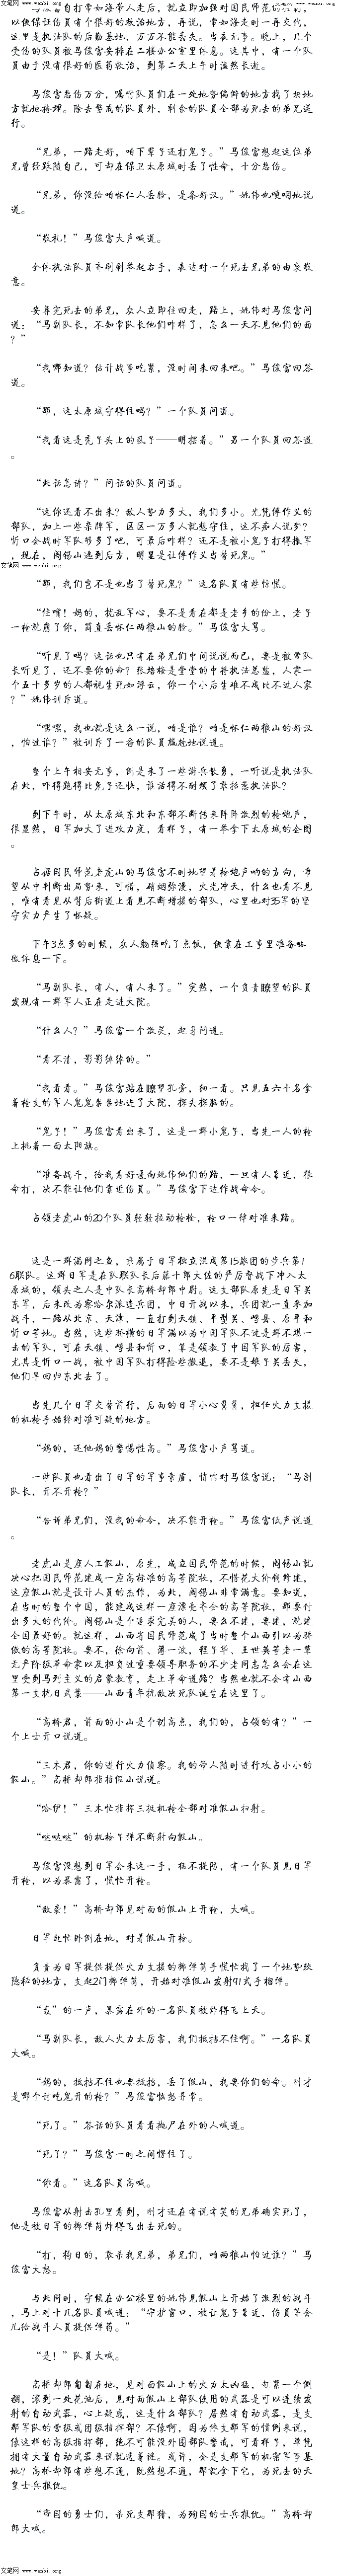 文笔网 www.wenbi.org
文笔网 www.wenbi.org
马俊富自打常如海带人走后，就立即加强对国民师范的
以便保证伤员有个很好的救治地方，再说，常如海走时一再交代，
这里是执法队的后勤基地，万万不能丢失。当夜无事。晚上，几个
受伤的队员被马俊富安排在二楼办公室里休息。这其中，有一个队
员由于没有很好的医药救治，到第二天上午时溘然长逝。
马俊富悲伤万分，嘱咐队员们在一处地势偏僻的地方找了块地
方就地掩埋。除去警戒的队员外，剩余的队员全部为死去的弟兄送
行。
“兄弟，一路走好，咱下辈子还打鬼子。”马俊富想起这位弟
兄曾经跟随自己，可却在保卫太原城时丢了性命，十分悲伤。
“兄弟，你没给咱怀仁人丢脸，是条好汉。”姚伟也哽咽地说
道。
“敬礼！”马俊富大声喊道。
全体执法队员齐刷刷举起右手，表达对一个死去兄弟的由衷敬
意。
安葬完死去的弟兄，众人立即往回走，路上，姚伟对马俊富问
道：“马副队长，不知常队长他们咋样了，怎么一天不见他们的面
？”
“我哪知道？估计战事吃紧，没时间来回来吧。”马俊富回答
道。
“那，这太原城守得住吗？”一个队员问道。
“我看这是秃子头上的虱子——明摆着。”另一个队员回答道
。
“此话怎讲？”问话的队员问道。
“这你还看不出来？敌人势力多大，我们多小。光凭傅作义的
部队，加上一些杂牌军，区区一万多人就想守住，这不痴人说梦？
忻口会战时军队够多了吧，可最后咋样？还不是被小鬼子打得撤军
，现在，阎锡山逃到后方，明显是让傅作义当替死鬼。”
文笔网 www.wenbi.org
“那，我们岂不是也当了替死鬼？”这名队员有些惊慌。
“住嘴！妈的，扰乱军心，要不是看在都是老乡的份上，老子
一枪就崩了你，简直丢怀仁两狼山的脸。”马俊富大骂。
“听见了吗？这话也只有在弟兄们中间说说而已，要是被常队
长听见了，还不要你的命？张培梅是堂堂的中将执法总监，人家一
个五十多岁的人都视生死如浮云，你一个小后生难不成比不过人家
？”姚伟训斥道。
“嘿嘿，我也就是这么一说，咱是谁？咱是怀仁两狼山的好汉
，怕过谁？”被训斥了一番的队员尴尬地说道。
整个上午相安无事，倒是来了一些游兵散勇，一听说是执法队
在此，吓得跑得比兔子还快，谁活得不耐烦了敢招惹执法队？
到下午时，从太原城东北和东部不断传来阵阵激烈的枪炮声，
很显然，日军加大了进攻力度，看样子，有一举拿下太原城的企图
。
占据国民师范老虎山的马俊富不时地望着枪炮声响的方向，希
望从中判断出局势来，可惜，硝烟弥漫，火光冲天，什么也看不见
，唯有看见从背后街道上看见不断增援的部队，心里也对35军的坚
守实力产生了怀疑。
下午3点多的时候，众人勉强吃了点饭，便靠在工事里准备略
做休息一下。
“马副队长，有人，有人来了。”突然，一个负责瞭望的队员
发现有一群军人正在走进大院。
“什么人？”马俊富一个激灵，起身问道。
“看不清，影影绰绰的。”
“我看看。”马俊富站在瞭望孔旁，细一看。只见五六十名拿
着枪支的军人鬼鬼祟祟地进了大院，探头探脑的。
“鬼子！”马俊富看出来了，这是一群小鬼子，当先一人的枪
上挑着一面太阳旗。
“准备战斗，给我看好通向姚伟他们的路，一旦有人靠近，狠
命打，决不能让他们靠近伤员。”马俊富下达作战命令。
占领老虎山的20个队员轻轻拉动枪栓，枪口一律对准来路。
这是一群漏网之鱼，隶属于日军独立混成第15旅团的步兵第1
6联队。这群日军是在队联队长后藤十郎大佐的严厉督战下冲入太
原城的，领头之人是中队长高桥却郎中尉。这支部队原先是日军关
东军，后来改为察哈尔派遣兵团，中日开战以来，兵团就一直参加
战斗，一路从北京、天津，一直打到天镇、平型关、崞县、原平和
忻口等地。当然，这些骄横的日军满以为中国军队不过是群不堪一
击的军队，可在天镇、崞县和忻口，算是领教了中国军队的厉害，
尤其是忻口一战，被中国军队打得险些撤退，要不是娘子关丢失，
他们早回归东北去了。
当先几个日军交替前行，后面的日军小心翼翼，担任火力支援
的机枪手始终对准可疑的地方。
“妈的，还他妈的警惕性高。”马俊富小声骂道。
一些队员也看出了日军的军事素质，悄悄对马俊富说：“马副
队长，开不开枪？”
“告诉弟兄们，没我的命令，决不能开枪。”马俊富低声说道
。
老虎山是座人工假山，原先，成立国民师范的时候，阎锡山就
决心把国民师范建成一座高标准的高等院校，不惜花大价钱修建，
这座假山就是设计人员的杰作，为此，阎锡山非常满意。要知道，
在当时的整个中国，能建成这样一座漂亮齐全的高等院校，那要付
出多大的代价。阎锡山是个追求完美的人，要么不建，要建，就建
全国最好的。就这样，山西省国民师范成了当时整个山西引以为骄
傲的高等院校。要不，徐向前、薄一波，程子华、王世英等老一辈
无产阶级革命家以及担负过重要领导职务的不少老同志怎么会在这
里受到马列主义的启蒙教育，走上革命道路？当然也就不会有山西
第一支抗日武装——山西青年抗敌决死队诞生在这里了。
“高桥君，前面的小山是个制高点，我们的，占领的有？”一
个上士开口说道。
“三木君，你的进行火力侦察。我的带人随时进行攻占小小的
假山。”高桥却郎指指假山说道。
“哈伊！”三木忙指挥三挺机枪全部对准假山扫射。
“哒哒哒”的机枪子弹不断射向假山。
马俊富没想到日军会来这一手，猛不提防，有一个队员见日军
开枪，以为暴露了，慌忙开枪。
“敌袭！”高桥却郎见对面的假山上开枪，大喊。
日军赶忙卧倒在地，对着假山开枪。
负责为日军提供提供火力支援的掷弹筒手慌忙找了一个地势较
隐秘的地方，支起2门掷弹筒，开始对准假山发射91式手榴弹。
“轰”的一声，暴露在外的一名队员被炸得飞上天。
“马副队长，敌人火力太厉害，我们抵挡不住啊。”一名队员
大喊。
“妈的，抵挡不住也要抵挡，丢了假山，我要你们的命。刚才
是哪个讨吃鬼开的枪？”马俊富恼怒异常。
“死了。”答话的队员看看抛尸在外的人喊道。
“死了？”马俊富一时之间愣住了。
“你看。”这名队员高喊。
马俊富从射击孔里看到，刚才还在有说有笑的兄弟确实死了，
他是被日军的掷弹筒炸得飞出去死的。
“打，狗日的，敢杀我兄弟，弟兄们，咱两狼山怕过谁？”马
俊富大怒。
与此同时，守候在办公楼里的姚伟见假山上开始了激烈的战斗
，马上对十几名队员喊道：“守护窗口，被让鬼子靠近，伤员等会
儿给战斗人员提供弹药。”
“是！”队员大喊。
高桥却郎匍匐在地，见对面假山上的火力太凶猛，赶紧一个侧
翻，滚到一处花池后，见对面假山上部队使用的武器是可以连续发
射的自动武器，心上疑惑，这是什么部队？居然有自动武器，是支
那军队的营级或团级指挥部？不像啊，因为依支那军的惯例来说，
像这样的高级指挥部，绝不可能没外围部队警戒，可看样子，单凭
拥有大量自动武器来说就透着诡。或许，会是支那军的机密军事基
地？高桥却郎有些想不通，既然想不通，那就拿下它，为死去的天
皇士兵报仇。
“帝国的勇士们，杀死支那猪，为殉国的士兵报仇。”高桥却
郎大喊。
文笔网 www.wenbi.org